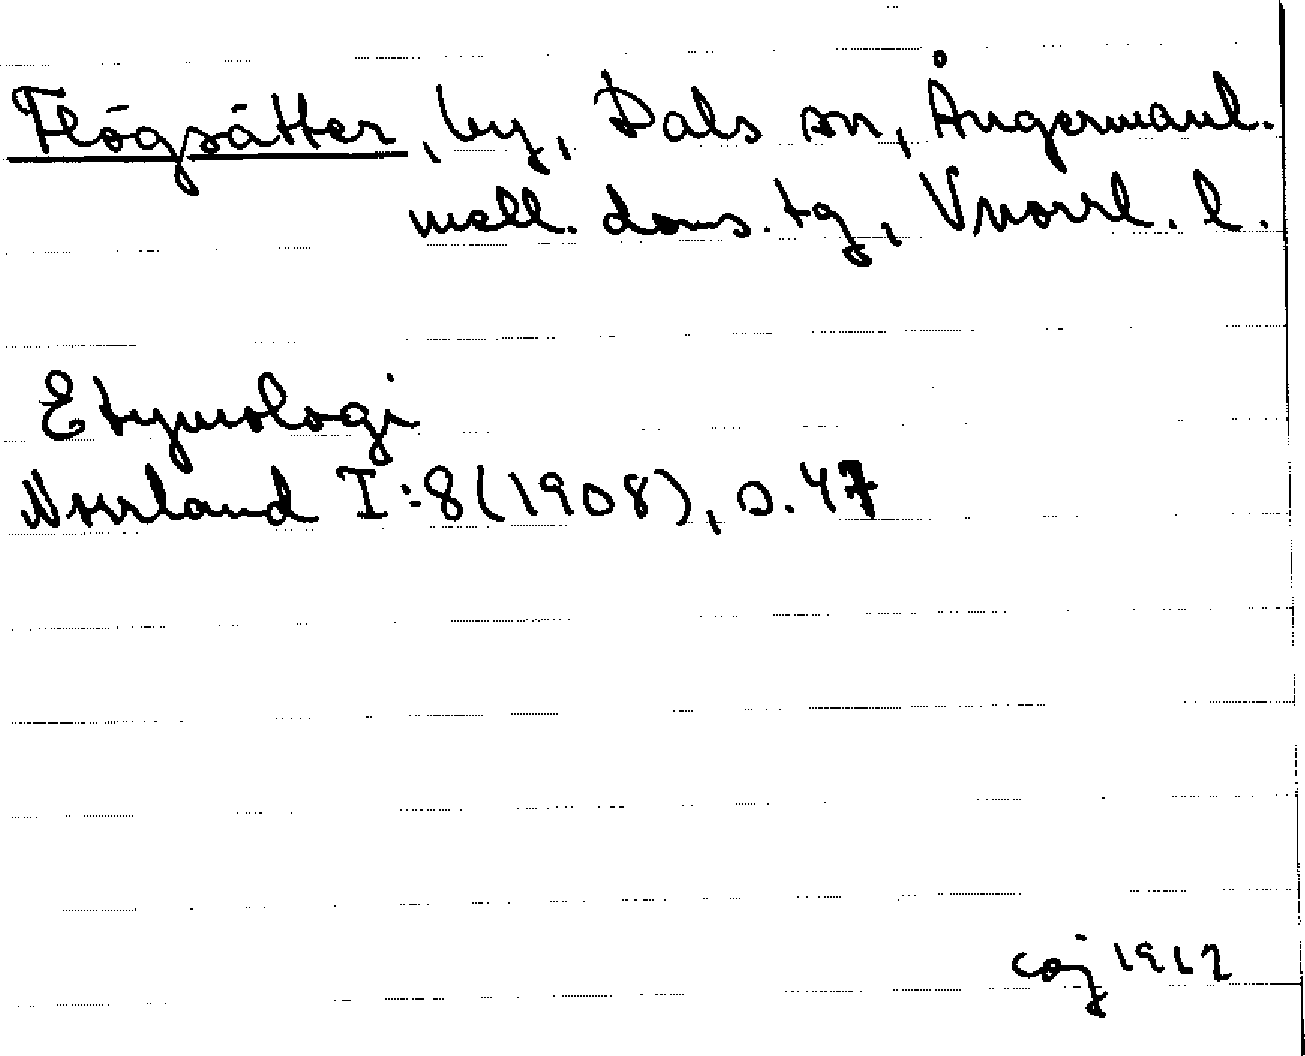 Flögsätter, by, Dals sn, Ångermanl.
mell. doms. tg, Vnorrl. l.
Etymologi
Norrland I:8(1908), s. 47
1962